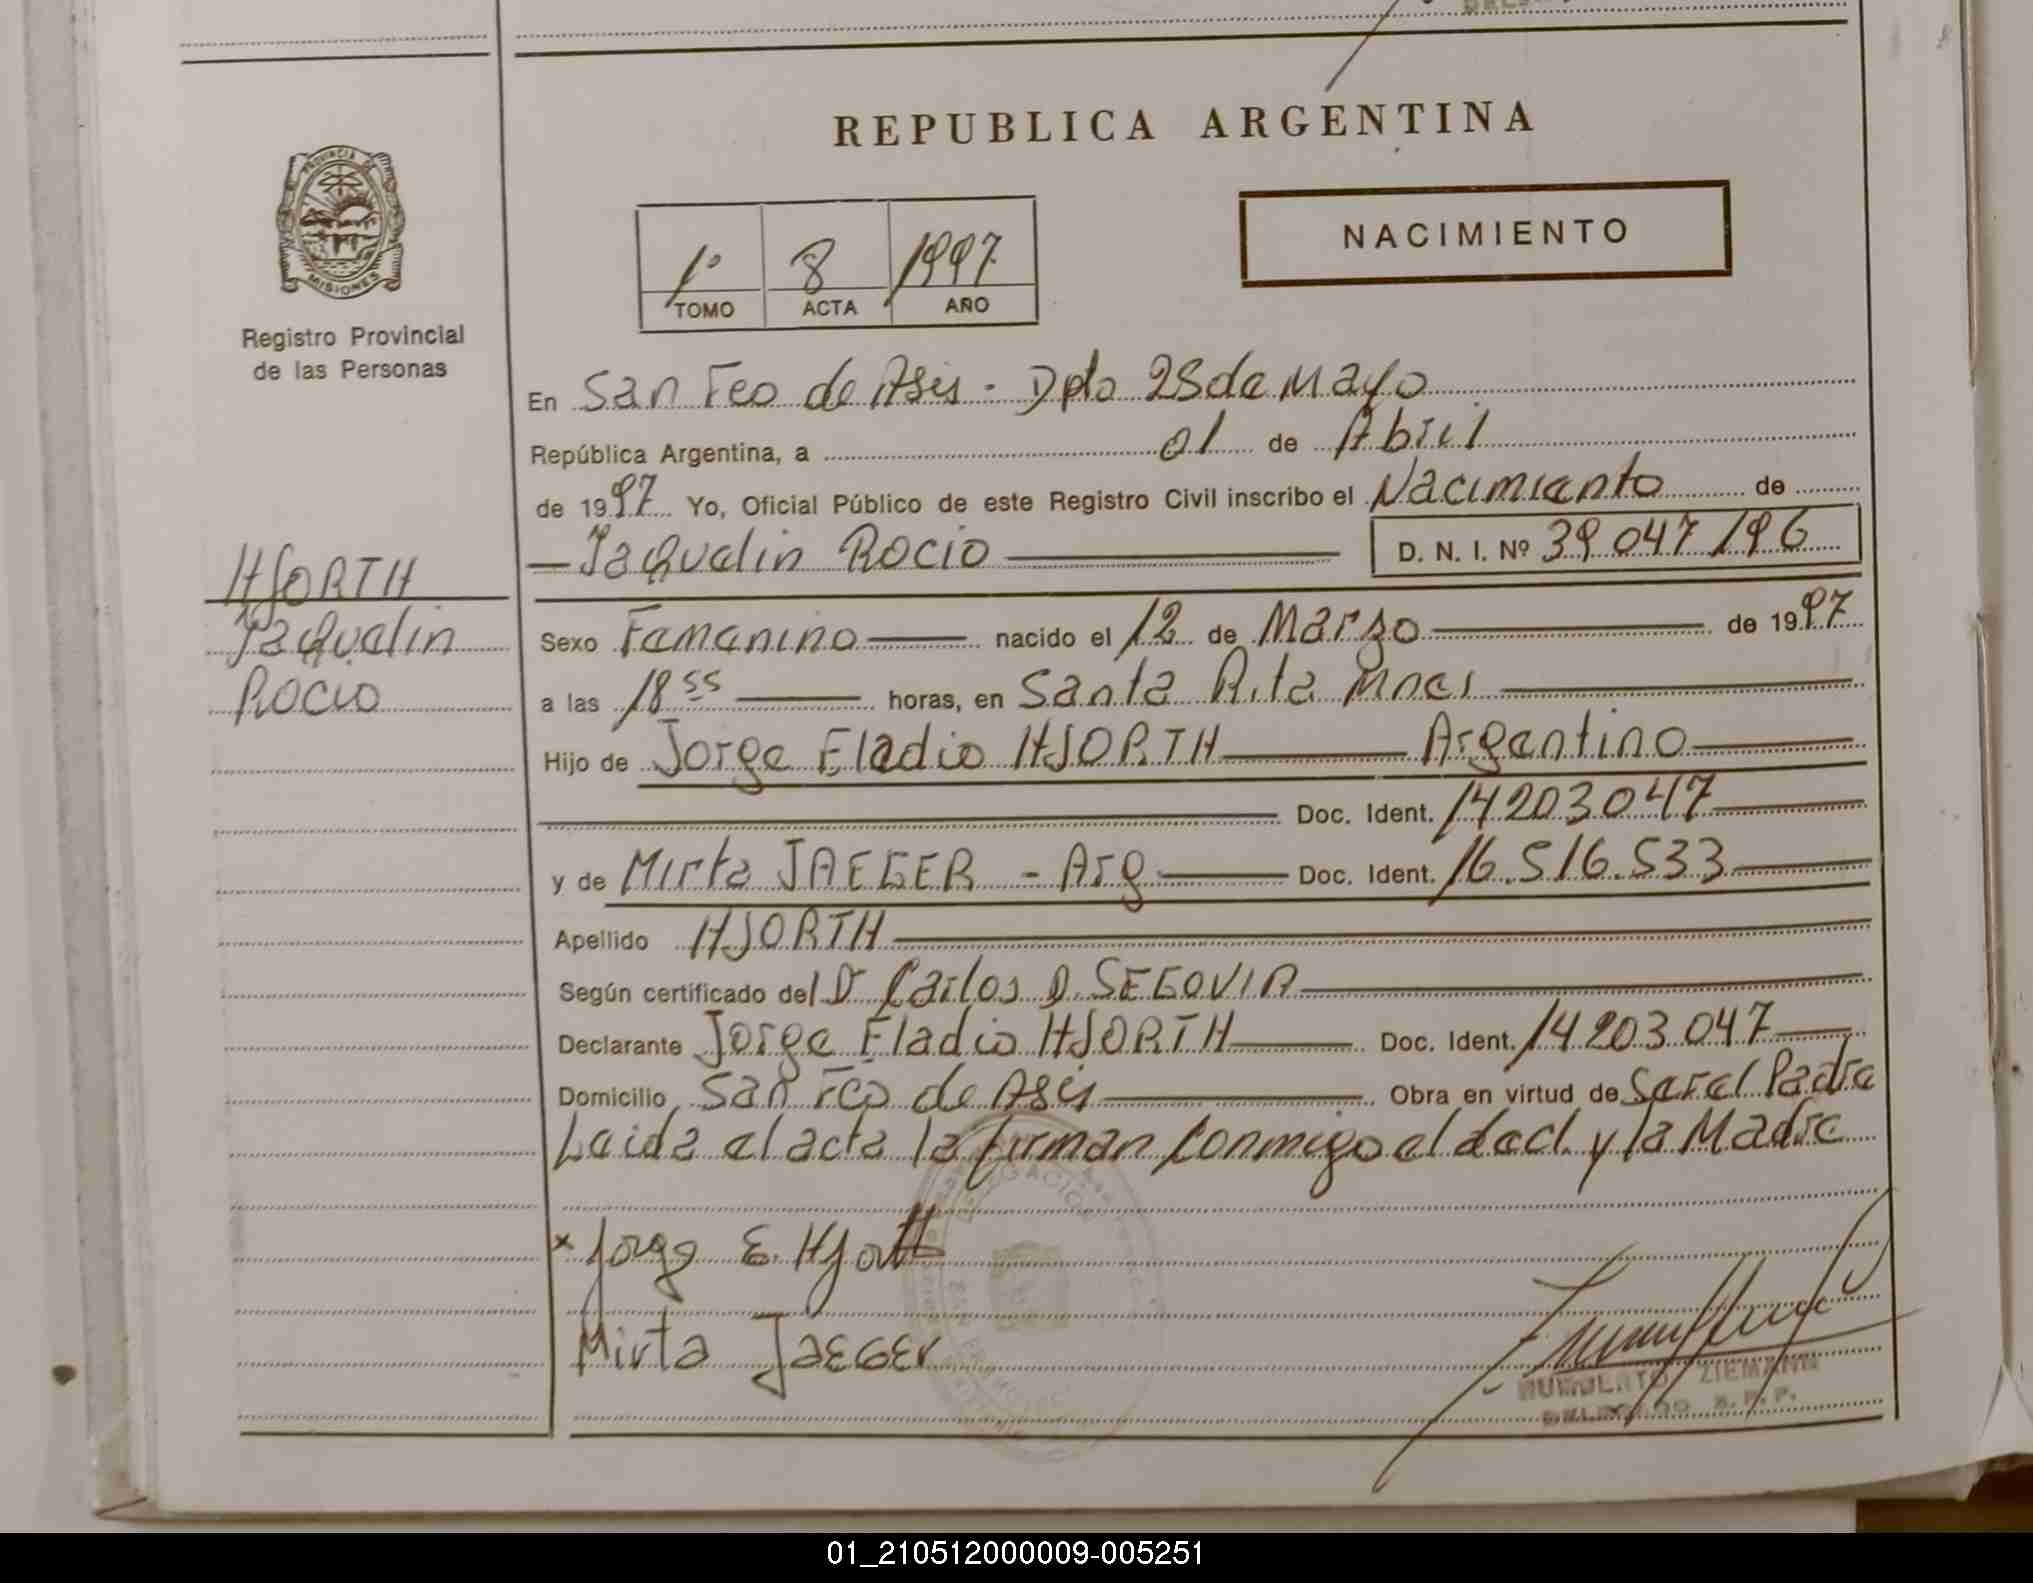 REPUBLICA ARGENTINA
PROVINCIA DE MISIONES
Registro Provincial
de las Personas
NACIMIENTO
1º 8 1997
TOMO ACTA AÑO
En San Fco de Asis - Dpto 25 de Mayo
República Argentina, a 01 de Abril
de 1997 Yo, Oficial Público de este Registro Civil inscribo el Nacimiento de
Jaquelin Rocio D. N. I. Nº 39 047 196
HJORTH
Jaquelin
Rocio
Sexo Femenino nacido el 12 de Marzo de 1997
a las 18 55 horas, en Santa Rita Mnes
Hijo de Jorge Eladio HJORTH Argentino
Doc. Ident. 14203047
y de Mirta JAEGER - Arg Doc. Ident. 16.516.533
Apellido HJORTH
Según certificado del Dr Carlos D. SEGOVIA
Declarante Jorge Eladio HJORTH Doc. Ident. 14203047
Domicilio San Fco de Asis Obra en virtud de Ser el Padre
Leida el acta la firman conmigo el decl. y la Madre
x Jorge E. Hjorth
Mirta JAEGER
ZIEMANN
01_210512000009-005251